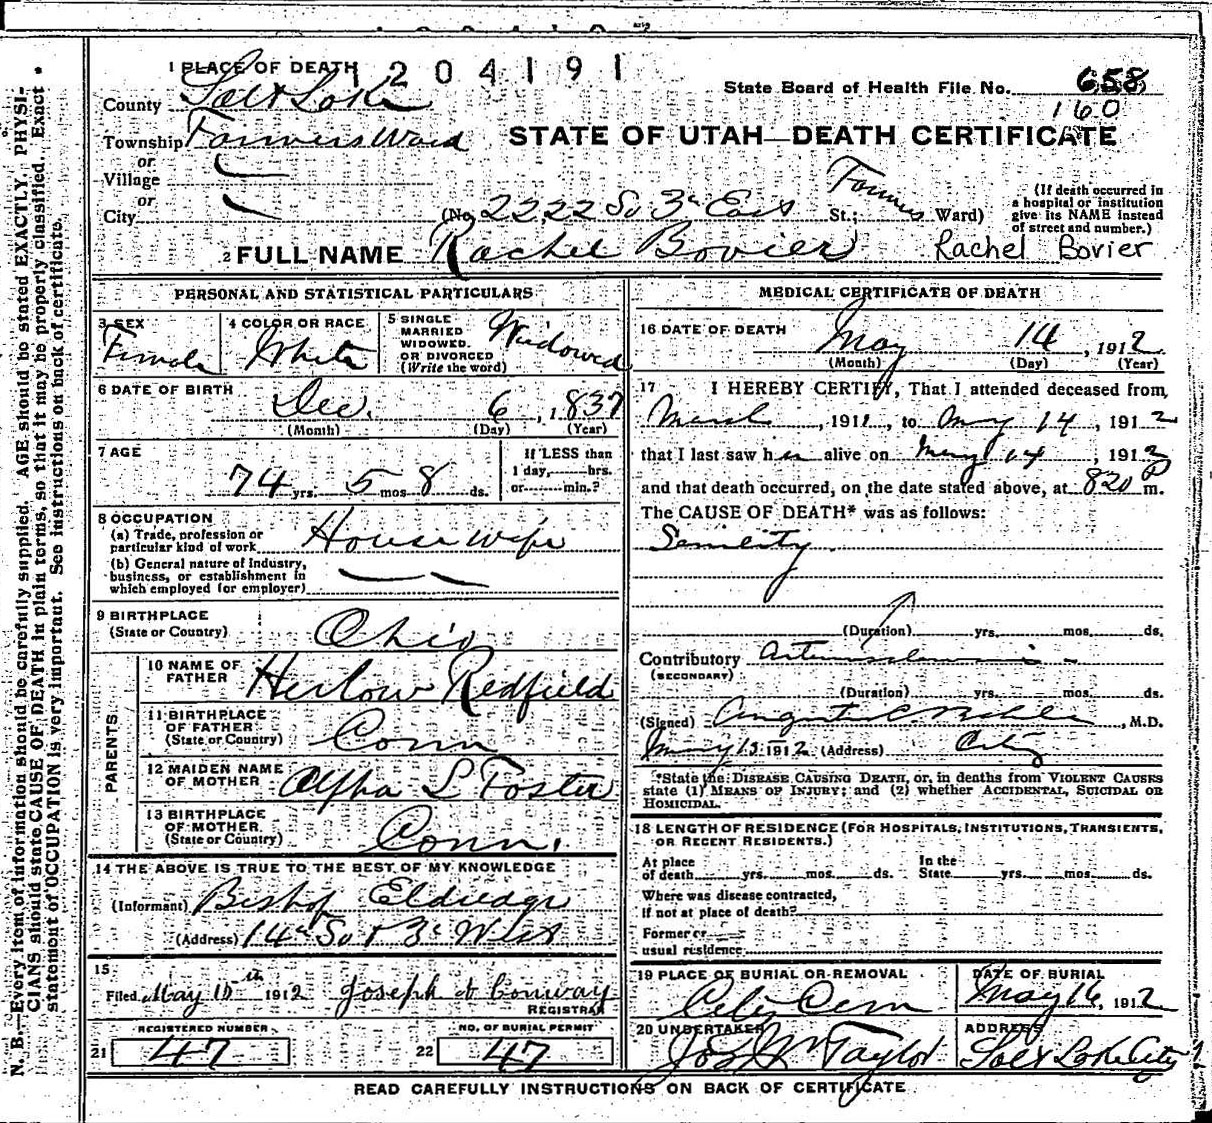 1 PLACE OF DEATH 1204191
County Salt Lake
State Board of Health File No. 658
160
Township Farmers Ward
STATE OF UTAH—DEATH CERTIFICATE
or
Village
or
City (No. 2222 So 3d East St.; Farmers Ward)
(If death occurred in
a hospital or institution
give its NAME instead
of street and number.)
2 FULL NAME Rachel Bovier Rachel Bovier
PERSONAL AND STATISTICAL PARTICULARS
3 SEX Female
4 COLOR OR RACE White
5 SINGLE
MARRIED
WIDOWED.
OR DIVORCED
(Write the word) Widowed
6 DATE OF BIRTH
Dec. 6, 1837
(Month) (Day) (Year)
7 AGE
74 yrs. 5 mos 8 ds.
If LESS than
1 day, hrs.
or min.?
8 OCCUPATION
(a) Trade, profession or
particular kind of work House wife
(b) General nature of Industry,
business, or establishment in
which employed (or employer)
9 BIRTHPLACE
(State or Country) Ohio
PARENTS
10 NAME OF
FATHER Herlow Redfield
11 BIRTHPLACE
OF FATHER
(State or Country) Conn
12 MAIDEN NAME
OF MOTHER Alpha L Foster
13 BIRTHPLACE
OF MOTHER
(State or Country) Conn.
14 THE ABOVE IS TRUE TO THE BEST OF MY KNOWLEDGE
(Informant) Bishop Eldredge
(Address) 14th So & 3d West
15
Filed May 15th 1912 Joseph H Conway
REGISTRAR
REGISTERED NUMBER
21 47
NO. OF BURIAL PERMIT
22 47
MEDICAL CERTIFICATE OF DEATH
16 DATE OF DEATH
May 14, 1912
(Month) (Day) (Year)
17 I HEREBY CERTIFY, That I attended deceased from
March, 1911, to May 14, 1912
that I last saw her alive on May 14, 1912
and that death occurred, on the date stated above, at 820 P m.
The CAUSE OF DEATH* was as follows:
Senility
(Duration) yrs. mos. ds.
Contributory
(SECONDARY)
(Duration) yrs. mos. ds.
(Signed) , M.D.
May 15 1912 (Address) City
*State the DISEASE CAUSING DEATH, or, in deaths from VIOLENT CAUSES
state (1) MEANS OF INJURY; and (2) whether ACCIDENTAL, SUICIDAL OR
HOMICIDAL.
18 LENGTH OF RESIDENCE (FOR HOSPITALS, INSTITUTIONS, TRANSIENTS,
OR RECENT RESIDENTS.)
At place
of death yrs. mos. ds.
In the
State yrs. mos. ds.
Where was disease contracted,
if not at place of death?
Former or
usual residence
19 PLACE OF BURIAL OR REMOVAL
City Cem
DATE OF BURIAL
May 16, 1912
20 UNDERTAKER
Jos Wm Taylor
ADDRESS
Salt Lake City
READ CAREFULLY INSTRUCTIONS ON BACK OF CERTIFICATE
N. B.—Every item of information should be carefully supplied. AGE should be stated EXACTLY. PHYSI-
CIANS should state CAUSE OF DEATH in plain terms, so that it may be properly classified. Exact
statement of OCCUPATION is very important. See instructions on back of certificate.